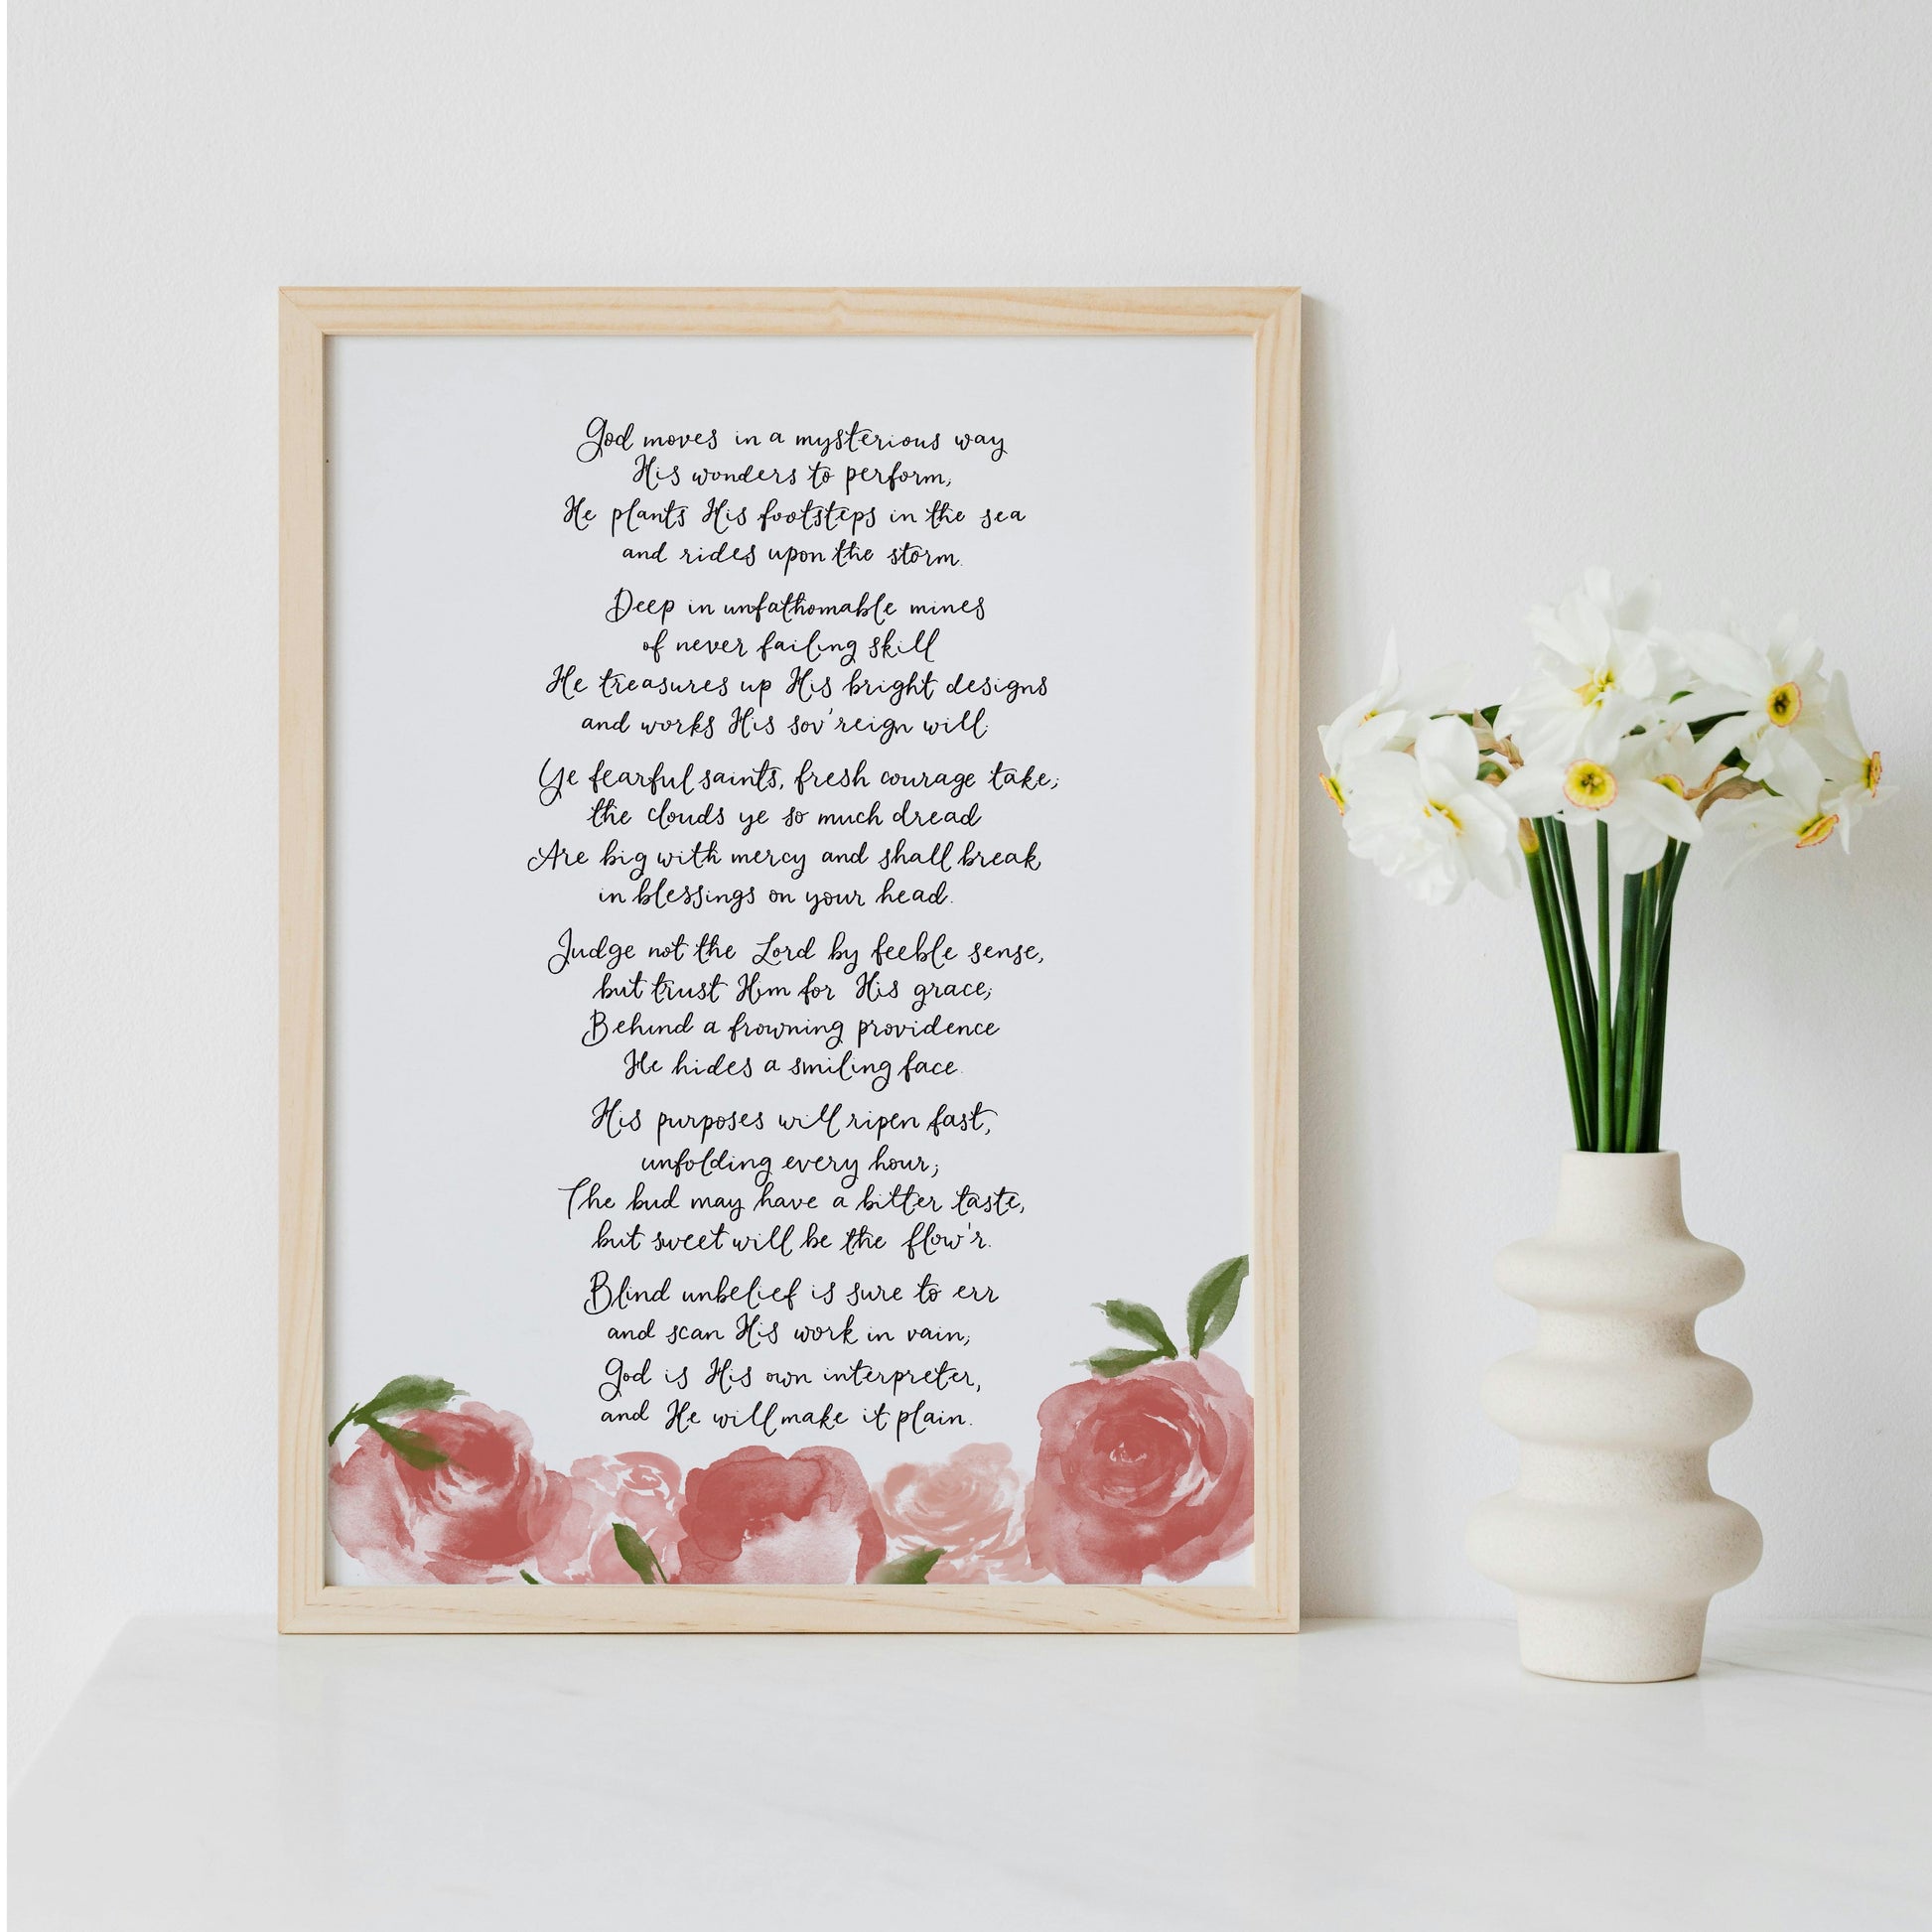 God moves in a mysterious way
His wonders to perform;
He plants His footsteps in the sea
and rides upon the storm.
Deep in unfathomable mines
of never failing skill
He treasures up His bright designs
and works His sov'reign will.
Ye fearful saints, fresh courage take;
the clouds ye so much dread
Are big with mercy and shall break
in blessings on your head.
Judge not the Lord by feeble sense,
but trust Him for His grace;
Behind a frowning providence
He hides a smiling face.
His purposes will ripen fast,
unfolding every hour;
The bud may have a bitter taste,
but sweet will be the flow'r.
Blind unbelief is sure to err
and scan His work in vain;
God is His own interpreter,
and He will make it plain.